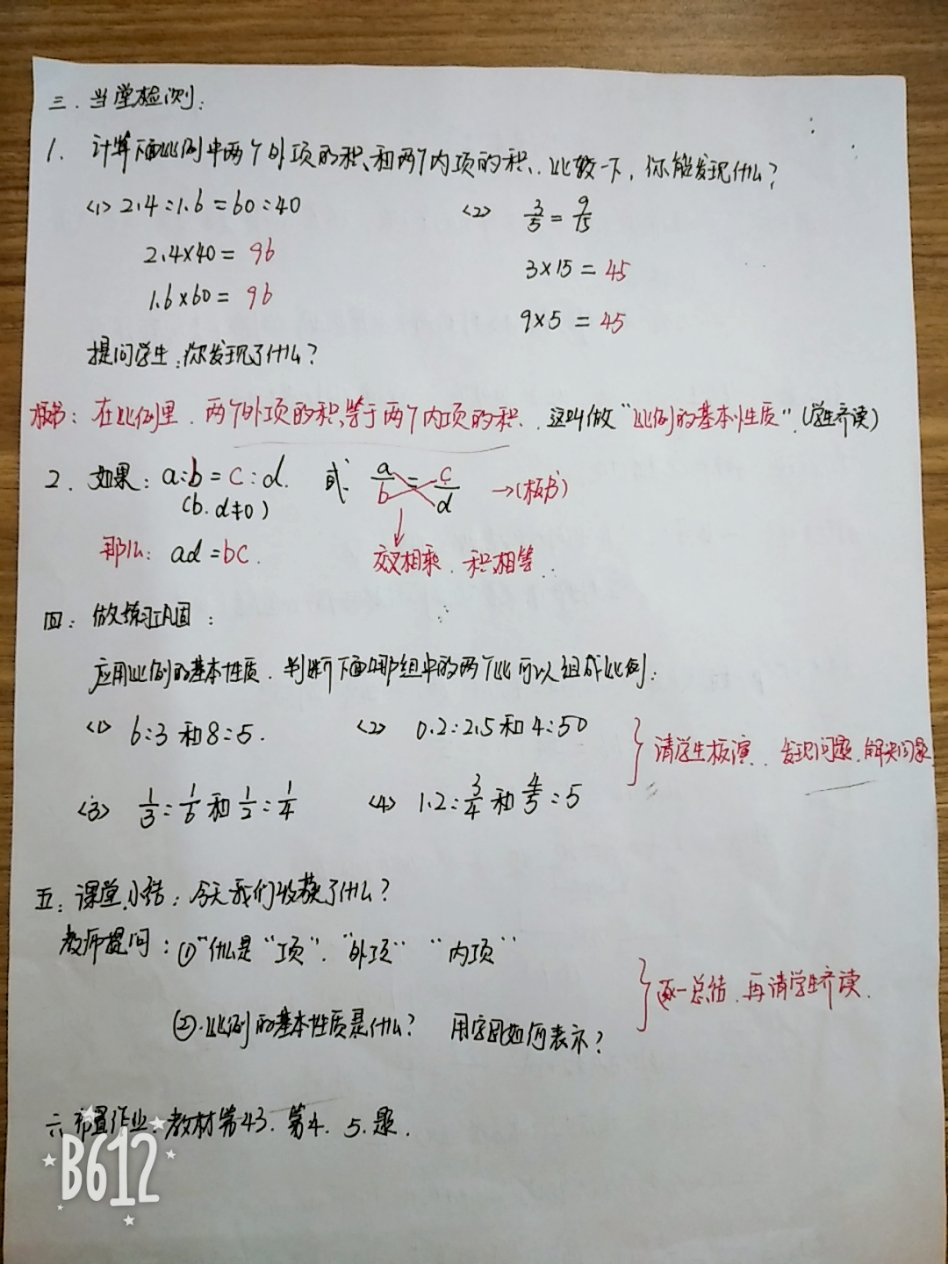 三、当堂检测:
1. 计算下面比例中两个外项的积和两个内项的积.比较一下,你能发现什么?
<1> 2.4:1.6=60:40 <2> 3/5=9/15
2.4×40=96 3×15=45
1.6×60=96 9×5=45
提问学生:你发现了什么?
板书:在比例里.两个外项的积等于两个内项的积.这叫做“比例的基本性质”(学生齐读)
2. 如果: a:b=c:d. 或. a/b=c/d →(板书)
(b.d≠0)
那么: ad=bc. 交叉相乘.积相等.
四:做练习巩固:
应用比例的基本性质.判断下面哪组中的两个比可以组成比例:
<1> 6:3和8:5. <2> 0.2:2.5和4:50
<3> 1/3:1/6和1/2:1/4 <4> 1.2:3/4和4/5:5
请学生板演.发现问题.解决问题
五:课堂小结:今天我们收获了什么?
教师提问:①“什么是“项”.“外项”“内项”
②.比例的基本性质是什么? 用字母如何表示?
逐一总结.再请学生齐读.
六 布置作业:教材第43.第4.5.题.
B612